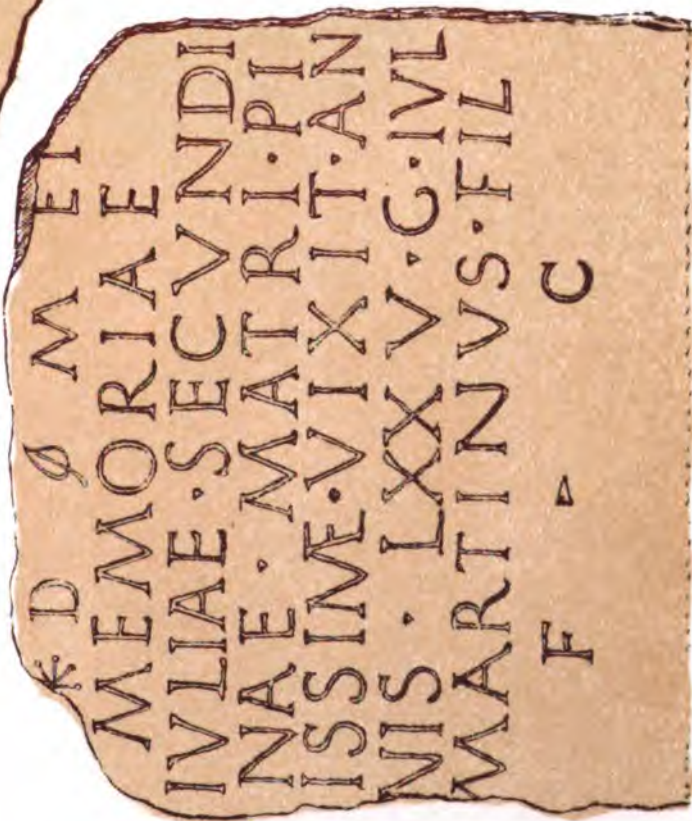 D M ET
MEMORIAE
IVLIAE · SECVNDI
NAE · MATRI · PI
ISSIME · VIXIT · AN
NIS · LXXV · G · IVL
MARTINVS · FIL
F C